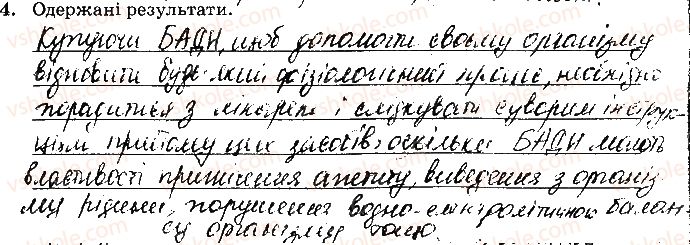 4. Одержані результати.
Купуючи БАДИ, щоб допомогти своєму організму
відновити будь-який фізіологічний процес, необхідно
порадитися з лікарем і слідкувати суворим інструк-
ціям прийому цих засобів, оскільки БАДИ мають
властивості пригнічення апетиту, виведення з організ
му рідини, порушення водно-електролітичного балан
су організму тощо.